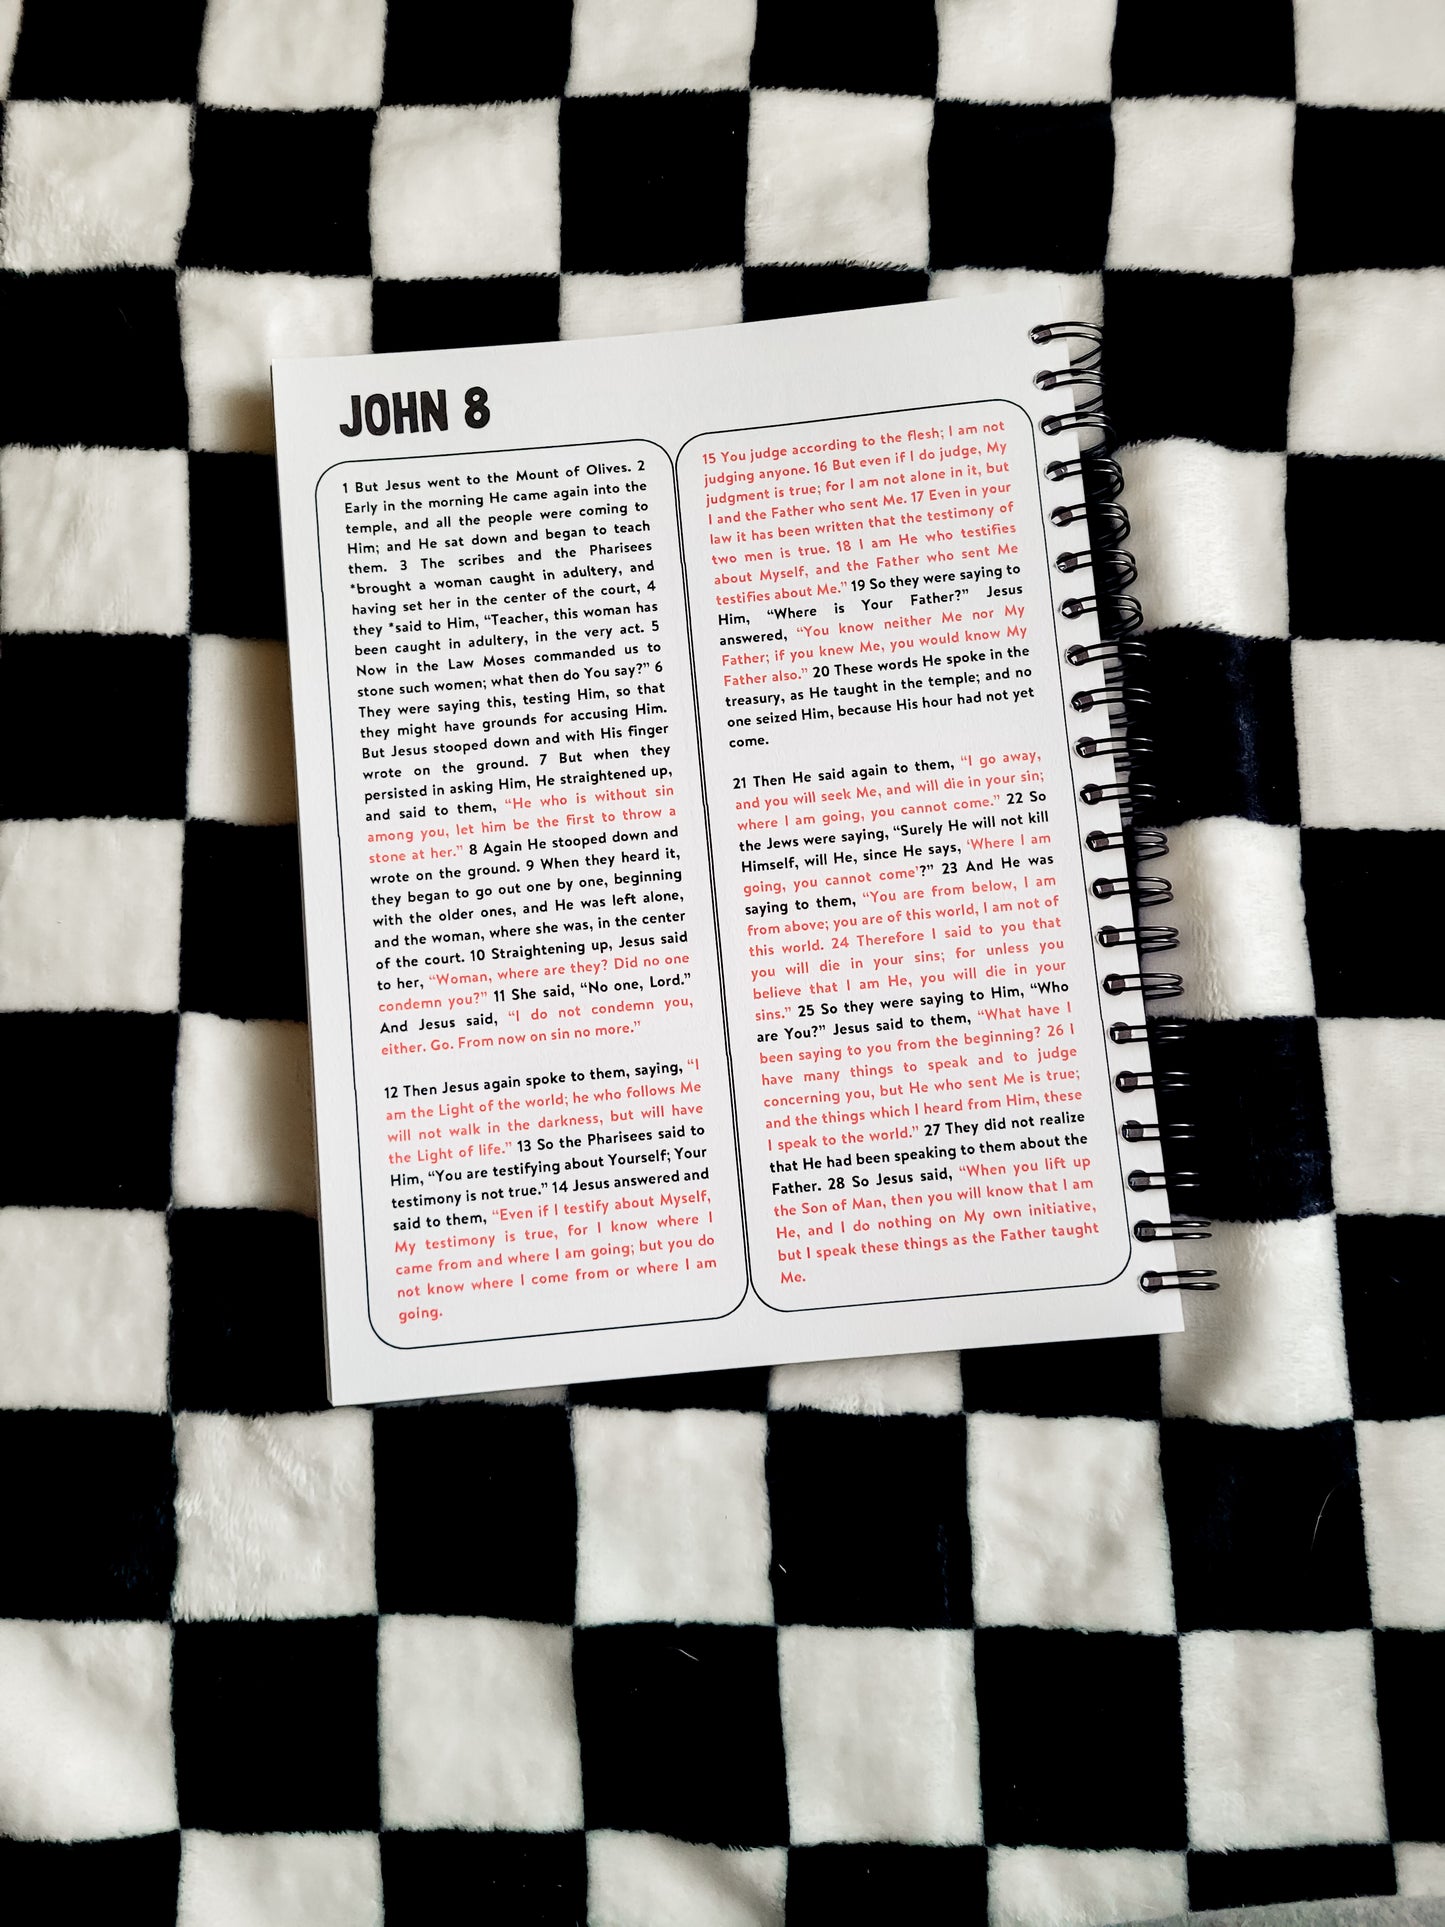 JOHN 8
1 But Jesus went to the Mount of Olives. 2
Early in the morning He came again into the
temple, and all the people were coming to
Him; and He sat down and began to teach
them. 3 The scribes and the Pharisees
*brought a woman caught in adultery, and
having set her in the center of the court, 4
they *said to Him, “Teacher, this woman has
been caught in adultery, in the very act. 5
Now in the Law Moses commanded us to
stone such women; what then do You say?” 6
They were saying this, testing Him, so that
they might have grounds for accusing Him.
But Jesus stooped down and with His finger
wrote on the ground. 7 But when they
persisted in asking Him, He straightened up,
and said to them, “He who is without sin
among you, let him be the first to throw a
stone at her.” 8 Again He stooped down and
wrote on the ground. 9 When they heard it,
they began to go out one by one, beginning
with the older ones, and He was left alone,
and the woman, where she was, in the center
of the court. 10 Straightening up, Jesus said
to her, “Woman, where are they? Did no one
condemn you?” 11 She said, “No one, Lord.”
And Jesus said, “I do not condemn you,
either. Go. From now on sin no more.”
12 Then Jesus again spoke to them, saying, “I
am the Light of the world; he who follows Me
will not walk in the darkness, but will have
the Light of life.” 13 So the Pharisees said to
Him, “You are testifying about Yourself; Your
testimony is not true.” 14 Jesus answered and
said to them, “Even if I testify about Myself,
My testimony is true, for I know where I
came from and where I am going; but you do
not know where I come from or where I am
going.
15 You judge according to the flesh; I am not
judging anyone. 16 But even if I do judge, My
judgment is true; for I am not alone in it, but
I and the Father who sent Me. 17 Even in your
law it has been written that the testimony of
two men is true. 18 I am He who testifies
about Myself, and the Father who sent Me
testifies about Me.” 19 So they were saying to
Him, “Where is Your Father?” Jesus
answered, “You know neither Me nor My
Father; if you knew Me, you would know My
Father also.” 20 These words He spoke in the
treasury, as He taught in the temple; and no
one seized Him, because His hour had not yet
come.
21 Then He said again to them, “I go away,
and you will seek Me, and will die in your sin;
where I am going, you cannot come.” 22 So
the Jews were saying, “Surely He will not kill
Himself, will He, since He says, ‘Where I am
going, you cannot come’?” 23 And He was
saying to them, “You are from below, I am
from above; you are of this world, I am not of
this world. 24 Therefore I said to you that
you will die in your sins; for unless you
believe that I am He, you will die in your
sins.” 25 So they were saying to Him, “Who
are You?” Jesus said to them, “What have I
been saying to you from the beginning? 26 I
have many things to speak and to judge
concerning you, but He who sent Me is true;
and the things which I heard from Him, these
I speak to the world.” 27 They did not realize
that He had been speaking to them about the
Father. 28 So Jesus said, “When you lift up
the Son of Man, then you will know that I am
He, and I do nothing on My own initiative,
but I speak these things as the Father taught
Me.